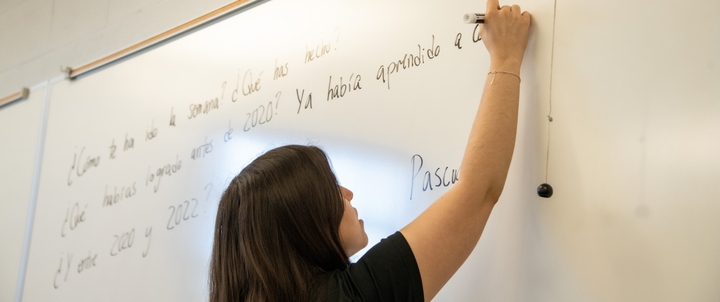 ¿Cómo te ha ido la semana? ¿Qué has hecho?
¿Qué habías logrado antes de 2020? Ya había aprendido a
¿Y entre 2020 y 2022?